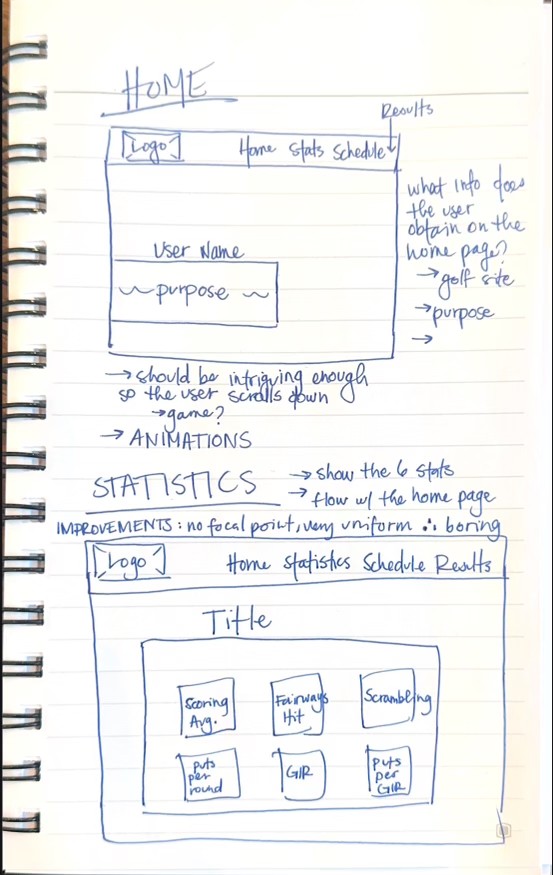 HOME
Results
Logo Home Stats Schedule
what info does
the user
obtain on the
home page?
→ golf site
→ purpose
→
User Name
~ purpose ~
→ should be intriguing enough
so the user scrolls down
→ game?
→ ANIMATIONS
STATISTICS
→ show the 6 stats
→ flow w/ the home page
IMPROVEMENTS: no focal point, very uniform ∴ boring
Logo Home Statistics Schedule Results
Title
Scoring
Avg.
Fairways
Hit
Scrambling
puts
per
round
GIR
puts
per
GIR